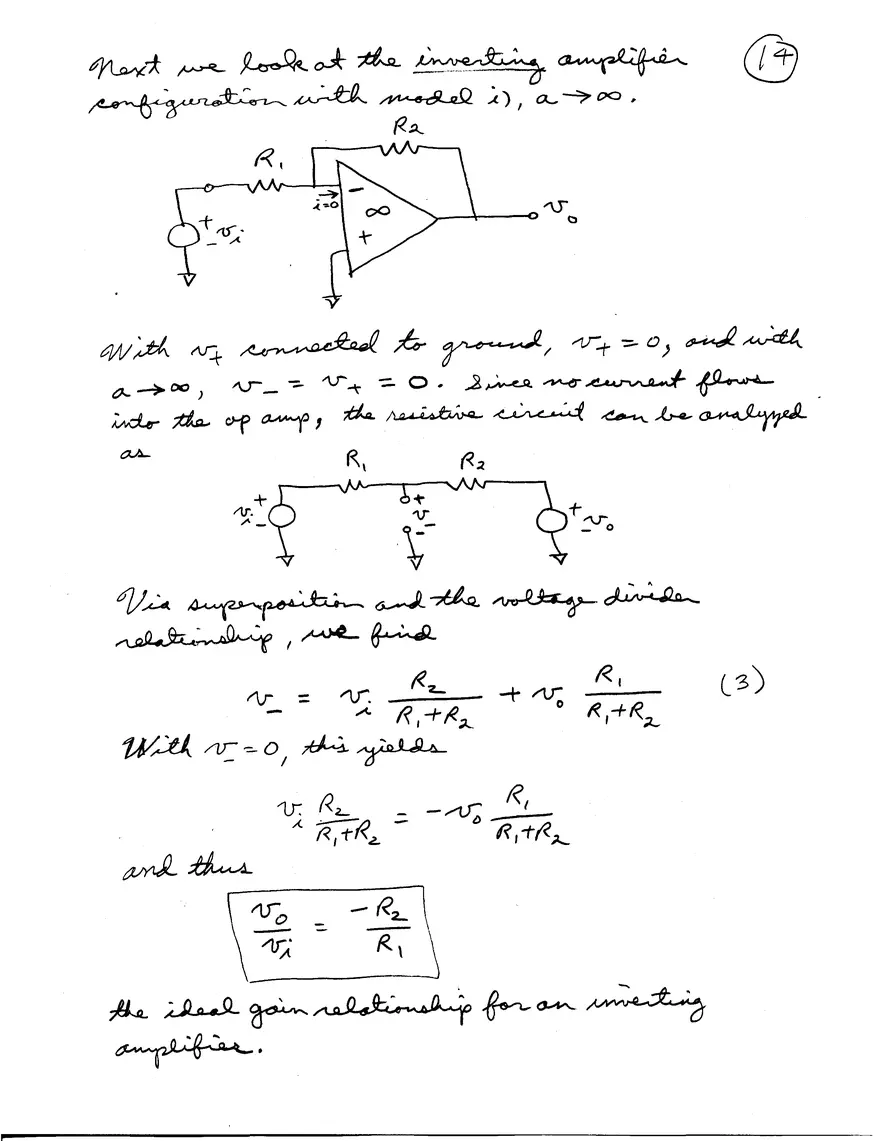 Next we look at the inverting amplifier
14
configuration with model i), a → ∞.
R2
R1
i=0
−
∞
+
+
− vi
vo
With v+ connected to ground, v+ = 0, and with
a → ∞, v− = v+ = 0. Since no current flows
into the op amp, the resistive circuit can be analyzed
as
R1 R2
vi + −
+ v− −
+ − vo
Via superposition and the voltage divider
relationship, we find
v− = vi R2/(R1+R2) + vo R1/(R1+R2) (3)
With v− = 0, this yields
vi R2/(R1+R2) = −vo R1/(R1+R2)
and thus
vo/vi = −R2/R1
the ideal gain relationship for an inverting
amplifier.